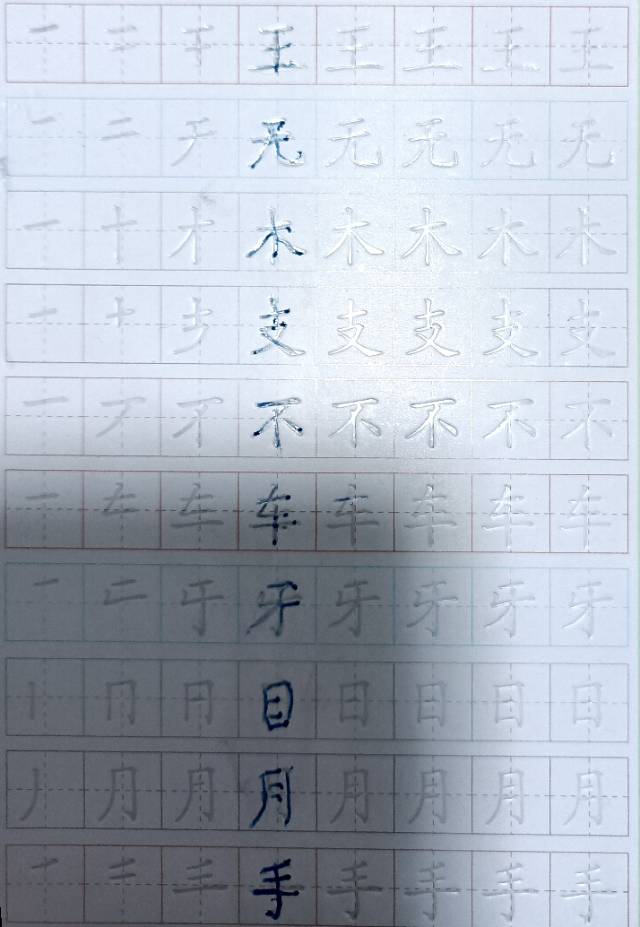 一 二 干 王 王 王 王 王
一 二 无 无 无 无 无
一 十 才 木 木 木 木 木
一 十 支 支 支 支 支
一 不 不 不 不 不
一 车 车 车 车 车 车
一 牙 牙 牙 牙 牙
丨 冂 目 日 日 日 日
丿 月 月 月 月 月 月 月
手 手 手 手 手